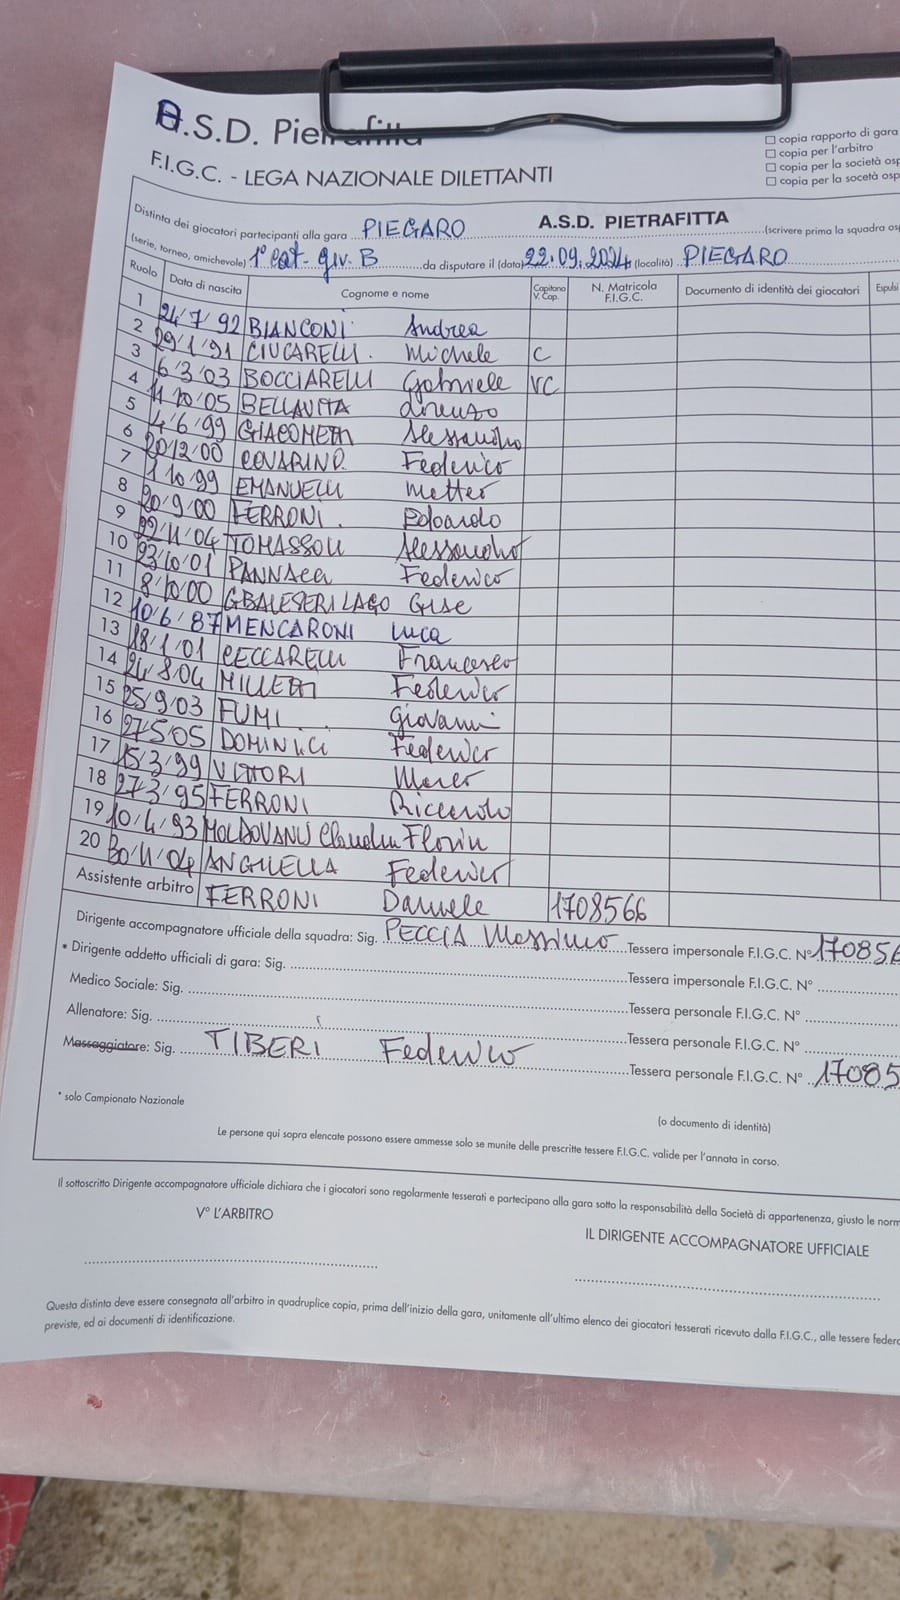 A.S.D. Pietrafitta
F.I.G.C. - LEGA NAZIONALE DILETTANTI
copia rapporto di gara
copia per l'arbitro
copia per la società osp
copia per la socetà osp
Distinta dei giocatori partecipanti alla gara PIEGARO A.S.D. PIETRAFITTA (scrivere prima la squadra os
(serie, torneo, amichevole) 1ª cat. gir. B da disputare il (data) 22.09.2024 (località) PIEGARO
Ruolo Data di nascita Cognome e nome Capitano V. Cap. N. Matricola F.I.G.C. Documento di identità dei giocatori Espulsi
1 24/7/92 BIANCONI Andrea
2 29/1/91 CIUCARELLI Michele C
3 6/3/03 BOCCIARELLI Gabriele VC
4 11/10/05 BELLAVITA Lorenzo
5 4/6/99 GIACOMETTI Alessandro
6 20/12/00 COVARINO Federico
7 1/10/99 EMANUELLI Matteo
8 20/9/00 FERRONI Edoardo
9 22/11/04 TOMASSOLI Alessandro
10 23/10/01 PANNACCI Federico
11 8/10/00 Gise
12 10/6/87 MENCARONI Luca
13 18/1/01 CECCARELLI Francesco
14 24/8/04 MILLETTI Federico
15 25/9/03 FUMI Giovanni
16 27/5/05 DOMINICI Federico
17 15/3/99 VITTORI Marco
18 27/3/95 FERRONI Riccardo
19 10/4/93 MOLDOVANU Claudiu Florin
20 30/11/04 ANGILELLA Federico
Assistente arbitro FERRONI Daniele 1708566
Dirigente accompagnatore ufficiale della squadra: Sig. PECCIA Massimo Tessera impersonale F.I.G.C. N° 170856
* Dirigente addetto ufficiali di gara: Sig. Tessera impersonale F.I.G.C. N°
Medico Sociale: Sig. Tessera personale F.I.G.C. N°
Allenatore: Sig. Tessera personale F.I.G.C. N°
Massaggiatore: Sig. TIBERI Federico Tessera personale F.I.G.C. N° 17085
* solo Campionato Nazionale
(o documento di identità)
Le persone qui sopra elencate possono essere ammesse solo se munite delle prescritte tessere F.I.G.C. valide per l'annata in corso.
Il sottoscritto Dirigente accompagnatore ufficiale dichiara che i giocatori sono regolarmente tesserati e partecipano alla gara sotto la responsabilità della Società di appartenenza, giusto le norm
V° L'ARBITRO
IL DIRIGENTE ACCOMPAGNATORE UFFICIALE
Questa distinta deve essere consegnata all'arbitro in quadruplice copia, prima dell'inizio della gara, unitamente all'ultimo elenco dei giocatori tesserati ricevuto dalla F.I.G.C., alle tessere federa
previste, ed ai documenti di identificazione.